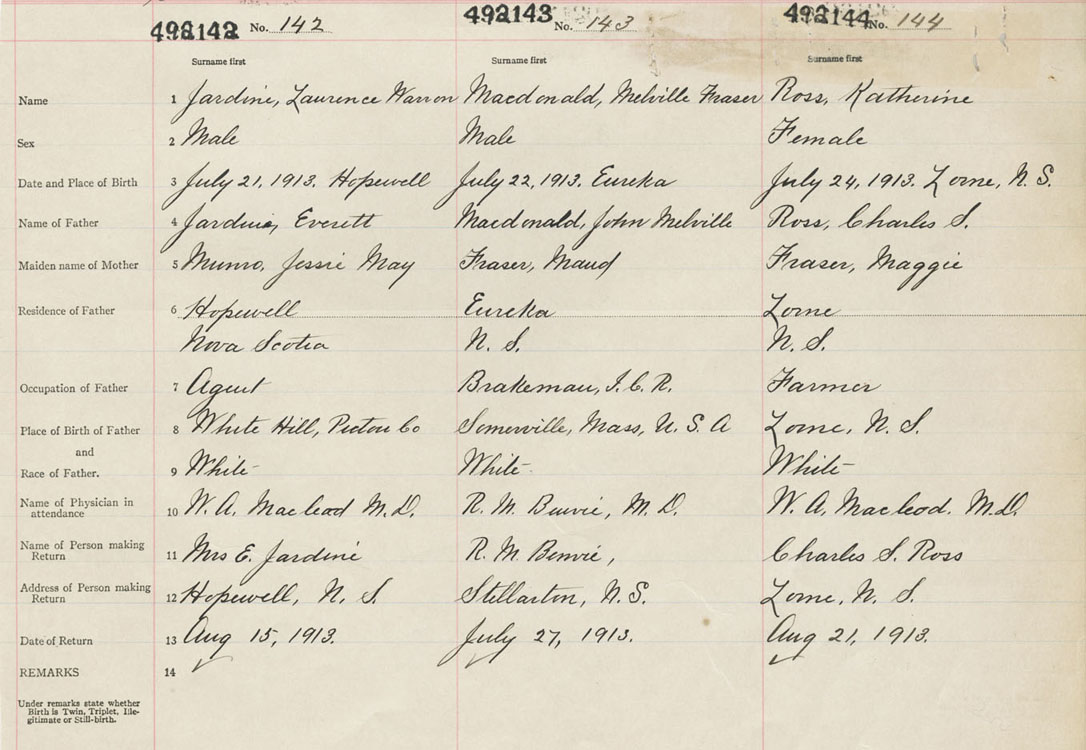 492142 No. 142 492143 No. 143 492144 No. 144
Surname first Surname first Surname first
Name 1 Jardine, Laurence Warron Macdonald, Melville Fraser Ross, Katherine
Sex 2 Male Male Female
Date and Place of Birth 3 July 21, 1913. Hopewell July 22, 1913. Eureka July 24, 1913. Lorne, N. S.
Name of Father 4 Jardine, Everett Macdonald, John Melville Ross, Charles S.
Maiden name of Mother 5 Munro, Jessie May Fraser, Maud Fraser, Maggie
Residence of Father 6 Hopewell Eureka Lorne
Nova Scotia N. S. N. S.
Occupation of Father 7 Agent Brakeman, I. C. R. Farmer
Place of Birth of Father 8 White Hill, Pictou Co Somerville, Mass, U. S. A Lorne, N. S.
and
Race of Father. 9 White White White
Name of Physician in
attendance 10 W. A. Macleod M.D. R. M. Benvie, M. D. W. A. Macleod. M.D.
Name of Person making
Return 11 Mrs E. Jardine R. M. Benvie, Charles S. Ross
Address of Person making
Return 12 Hopewell, N. S. Stellarton, N.S. Lorne, N. S.
Date of Return 13 Aug 15, 1913. July 27, 1913. Aug 21, 1913.
REMARKS 14
Under remarks state whether
Birth is Twin, Triplet, Ille-
gitimate or Still-birth.